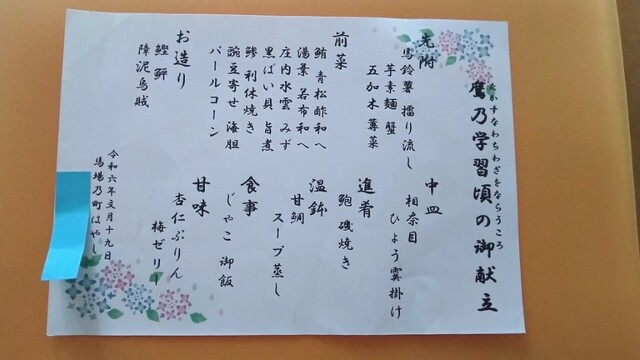 鷹乃学習頃の御献立
たかすなわちわざをならうころ
先附
馬鈴薯 擂り流し
芋素麺 蟹
五加木 蓴菜
前菜
鮪 青松酢和へ
湯葉 若布和へ
庄内水雲 みず
黒ばい貝 旨煮
鯵 利休焼き
豌豆寄せ 海胆
パールコーン
お造り
鰹 鮃
障泥烏賊
中皿
相奈目
ひょう雲掛け
進肴
鮑 磯焼き
温鉢
甘鯛
スープ蒸し
食事
じゃこ 御飯
甘味
杏仁ぷりん
梅ゼリー
令和六年文月十九日
馬場乃町はやし